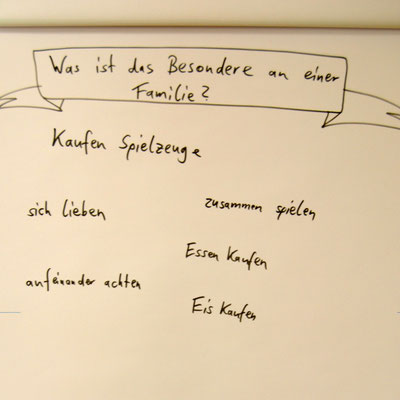 Was ist das Besondere an einer
Familie?
Kaufen Spielzeuge
sich lieben
zusammen spielen
Essen Kaufen
aufeinander achten
Eis Kaufen